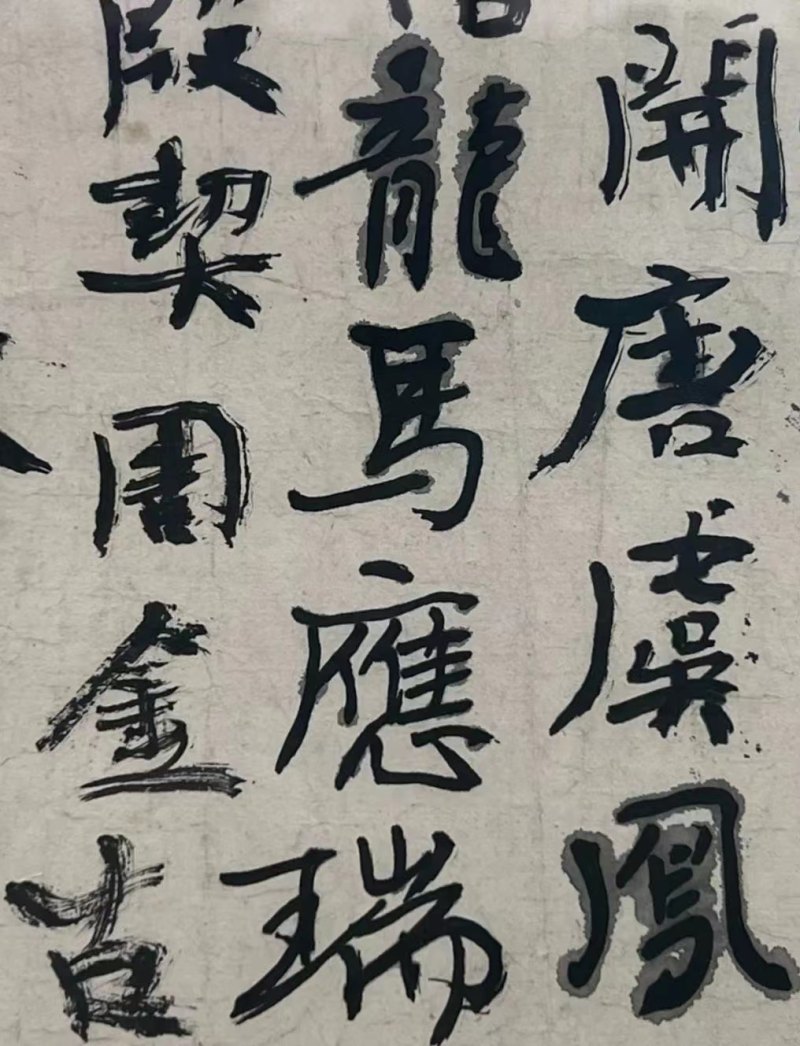 開唐虞鳳
龍馬應瑞
殷契周金古